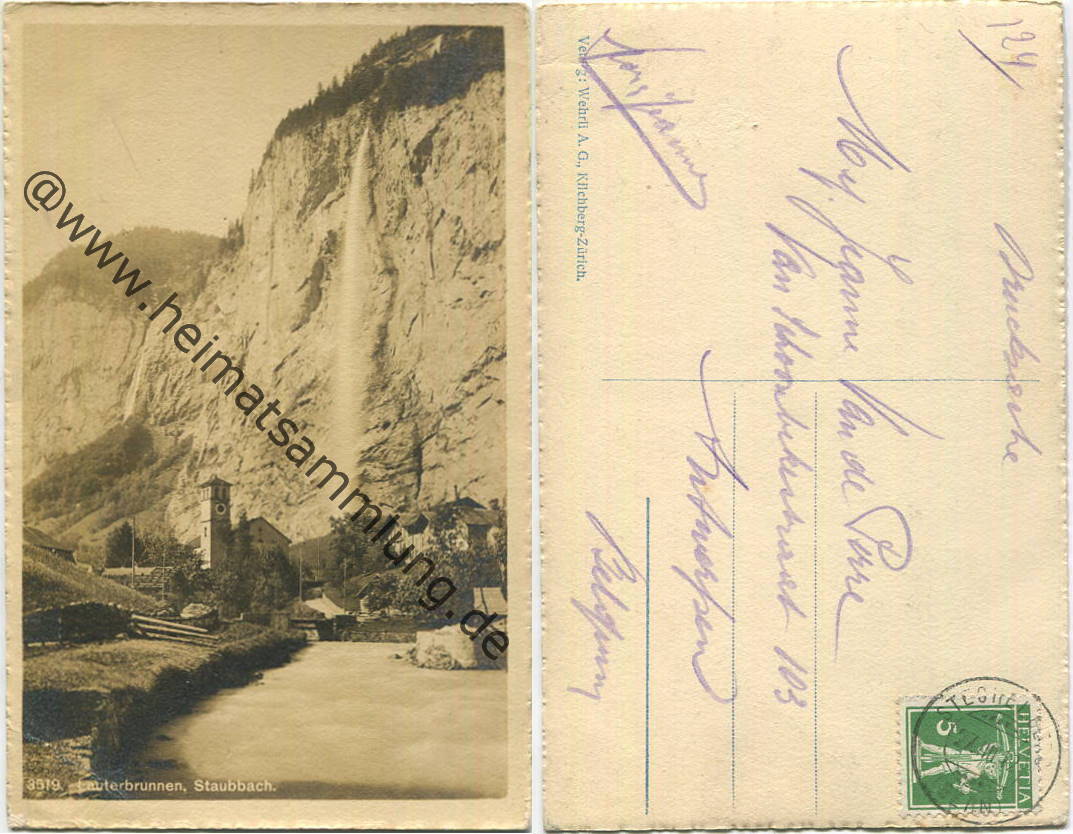 @www.heimatsammlung.de
3519. Lauterbrunnen, Staubbach.
Verlag: Wehrli A. G., Kilchberg-Zürich.
124
Drucksache
Mej. Jeanne Van de Perre
Van Schoonbekestraat 103
Antwerpen
HELVETIA
5